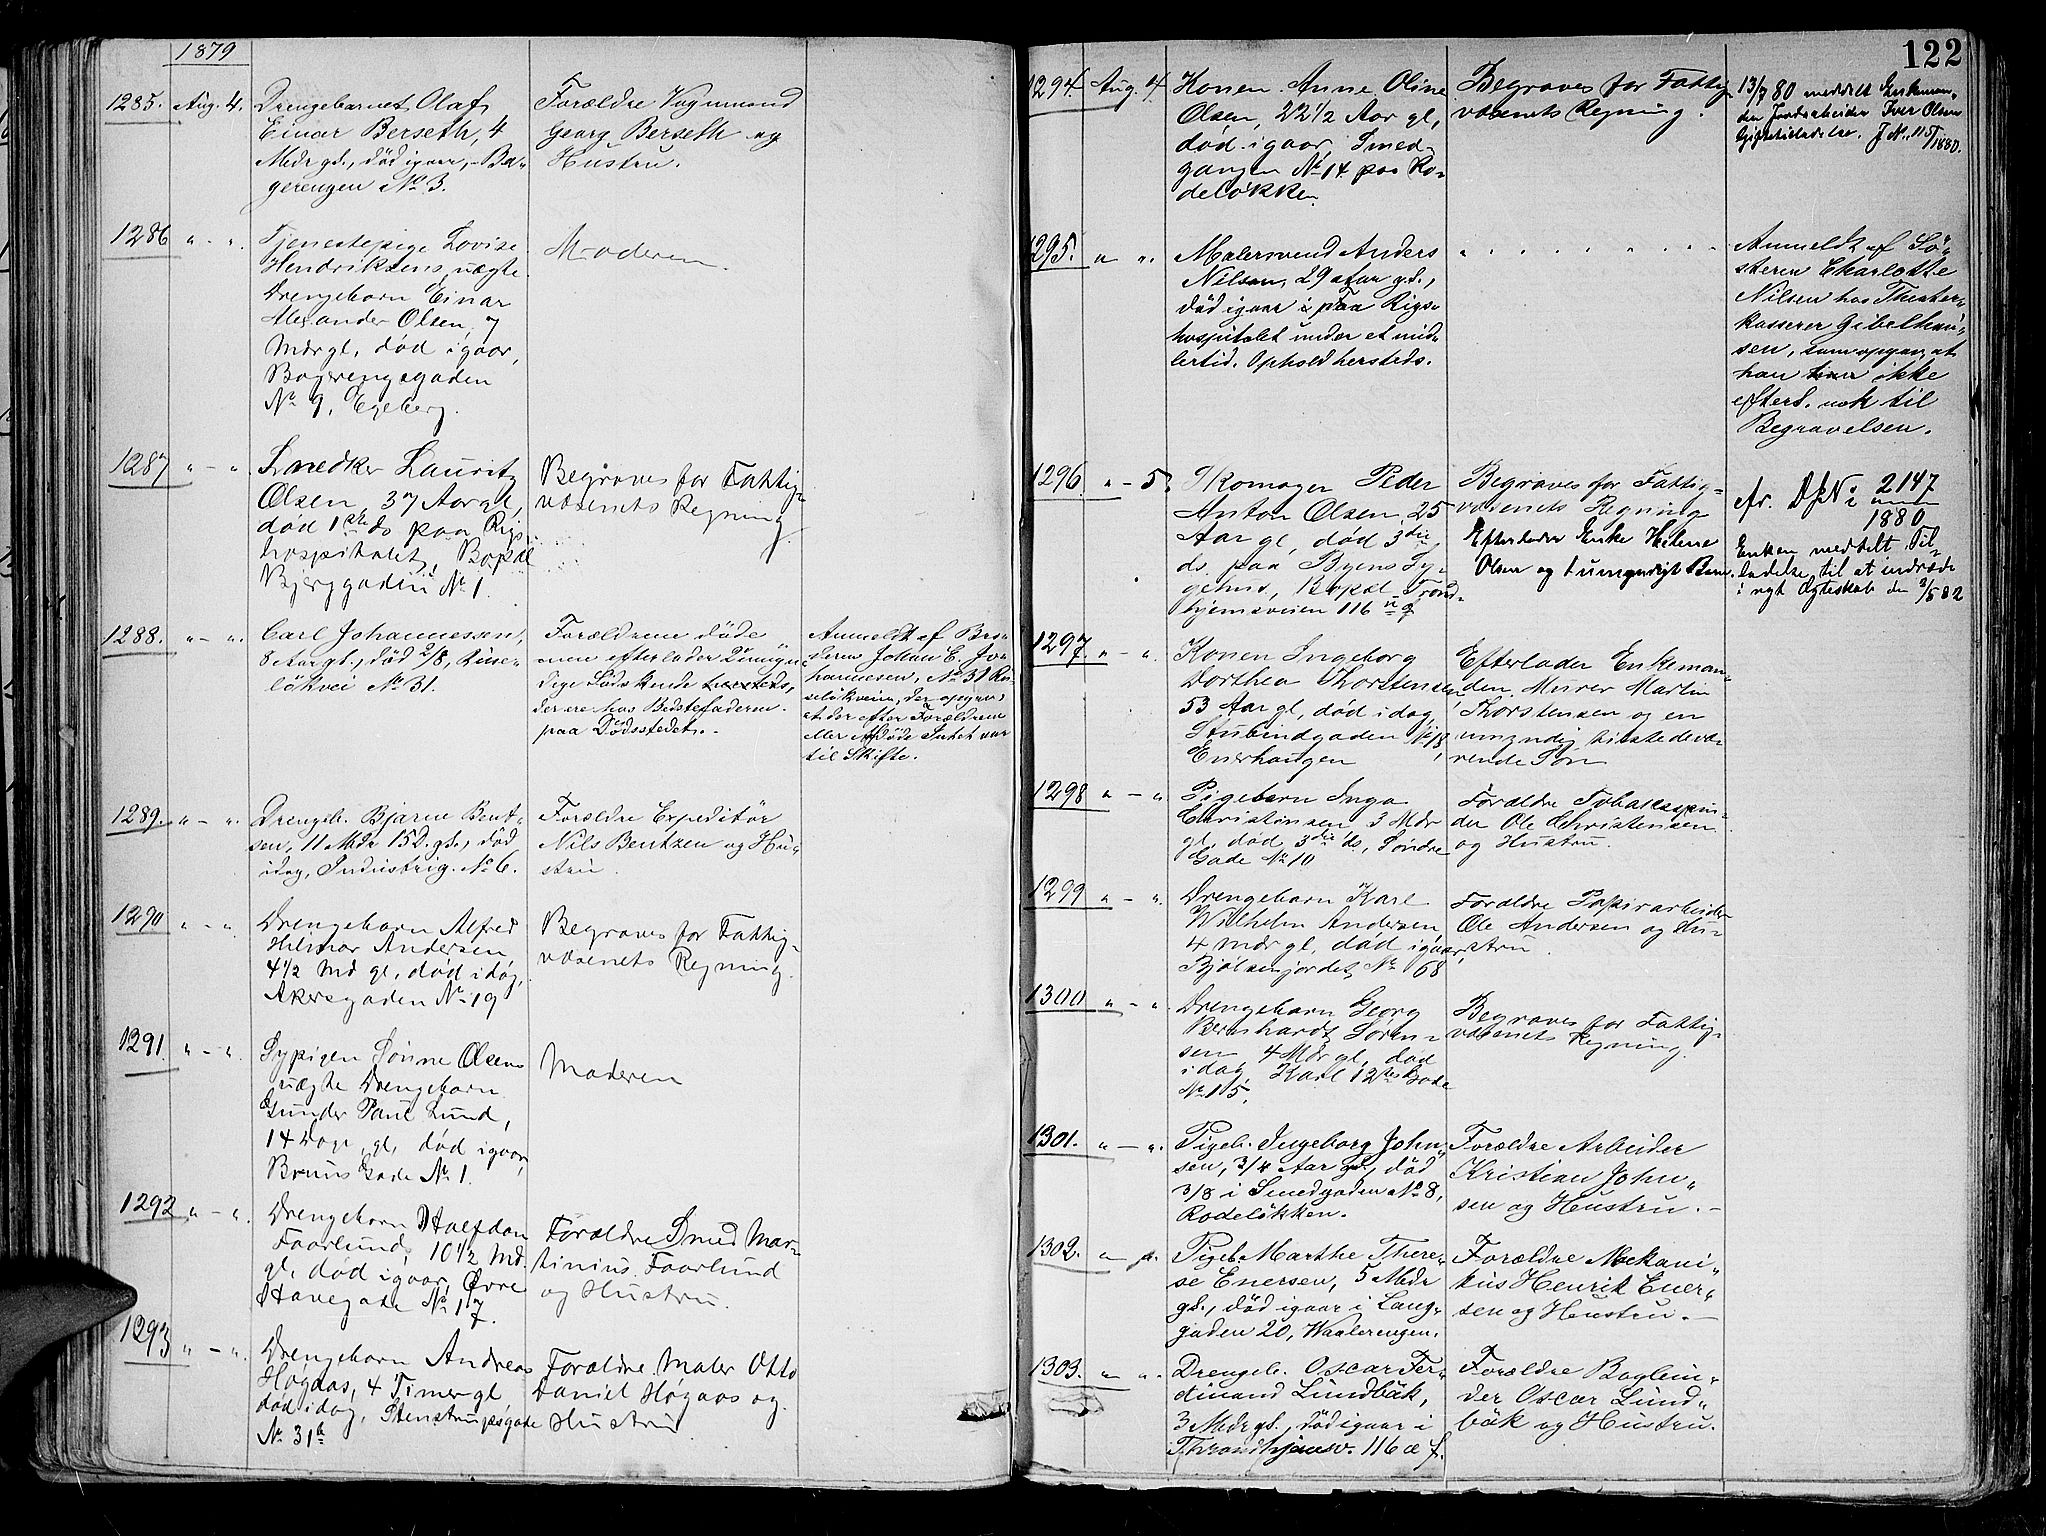 1879
1285. Aug. 4. Drengebarnet Olaf
Einar Berseth, 4
Mdr gl., död igaar, Ba-
gerengen No 3.
Forældre Vognmand
Georg Berseth og
Hustru.
1286 " - " Tjenestepige Lovise
Hendriksens uægte
Drengebarn Einar
Alexander Olsen, 7
Mdr gl, død igaar,
Bagerengsgaden
No 9, Egeberg.
Moderen.
1287 " - " Snedker Lauritz
Olsen, 37 Aar gl,
død 1ste ds paa Rigs-
hospitalet, Bopæl
Bjerggaden No 1.
Begraves for Fattig-
væsenets Regning
1288. " - " Carl Johannessen,
8 Aar gl., död 2/8, Ruse-
lökvei No 31.
Forældrene døde
men efterlader 2 umyn-
dige Södskende hersteds,
der ere hos Bedstefaderen
paa Dödsstedet.
Anmeldt af Bro-
deren Johan E. Jo-
hannesen, No 31 Ru-
selökveien, der opgav,
at der efter Forældrene
eller Afdöde Intet var
til Skifte.
1289. " - " Drengeb. Bjarne Bent-
sen, 11 Mdr 15 D. gl., död
idag, Industrig. No 6.
Forældre Expeditör
Nils Bentzen og Hu-
stru.
1290 " - " Drengebarn Alfred
Hilmar Andersen
4 1/2 Md gl, død idag,
Akersgaden No 19
Begraves for Fattig-
væsenets Regning.
1291. " - " Sypigen Sønne Olsens
uægte Drengebarn
Gunder Paul Lund,
14 Dage gl, død igaar,
Bruns Gade No 1.
Moderen
1292 " - " Drengebarn Halfdan
Faarlund, 10 1/2 Md.
gl, død igaar, Øvre
Havegade No 17.
Forældre Smed Mar-
tinius Faarlund
og Hustru.
1293 " - " Drengebarn Andreas
Høgaas, 4 Timer gl
død idag, Stenstrupsgade
No 31b
Forældre Maler Otto
Daniel Høgaas og
Hustru
122
1294. Aug. 4 Konen Anne Oline
Olsen, 22 1/2 Aar gl,
død igaar, Smed-
gangen No 14 paa Ro-
deløkken.
Begraves for Fattig-
væsenets Regning.
13/8 80 meddelt Enkeman-
den Jordarbeider Iver Olsen
Giftetilladelse. J No. 115/1880.
1295. " " Malersvend Anders
Nilsen, 29 Aar gl.,
död igaar i paa Rigs-
hospitalet under et mid-
lertid. Ophold hersteds.
" " " " " " "
Anmeldt af Sö-
steren Charlotte
Nilsen hos Theater-
kasserer Gibelhau-
sen, som opgav, at
han ikke
efterl. nok til
Begravelsen.
1296 " - 5. Skomager Peder
Anton Olsen, 25
Aar gl, død 3die
ds. paa Byens Sy-
gehus, Bopæl Trond-
hjemsveien 116
Begraves for Fattig-
væsenets Regning
Efterlader Enke Helene
Olsen og 1 umyndigt Barn.
cfr. DpNo 2147
1880
Enken meddelt Til-
ladelse til at indtræde
i nyt Ægteskab den 2/5 82
1297 " - " Konen Ingeborg
Dorthea Thorstensen
53 Aar gl, død idag,
Stubendgaden No 18,
Enerhaugen
Efterlader Enkeman-
den, Murer Martin
Thorstensen og en
umyndig tilstedevæ-
rende Søn
1298 " - " Pigebarn Inga
Christensen 3 Mdr
gl, død 3die ds, Søndre
Gade No 10
Forældre Tobaksspin-
der Ole Christensen
og Hustru.
1299 " - " Drengebarn Karl
Wilhelm Andersen
4 Mdr gl, død igaar,
Bjølsenjordet No 68
Forældre Papirarbeider
Ole Andersen og Hu-
stru.
1300 " - " Drengebarn Georg
Bernhardt Søren-
sen 4 Mdr gl, død
idag, Karl 12tes Gade
No 15.
Begraves for Fattig-
væsenets Regning.
1301. " - " Pigeb. Ingeborg John-
sen, 3/4 Aar gl., död
3/8 i Smedgaden No 8,
Rodelökken.
Forældre Arbeider
Kristian John-
sen og Hustru. -
1302. " " Pigeb. Marthe There-
se Enersen, 5 Mdr
gl., död igaar i Lang-
gaden 20, Waalerengen.
Forældre Mekani-
kus Henrik Ener-
sen og Hustru. -
1303. " " Drengeb. Oscar Fer-
dinand Lundbäk,
3 Mdr gl., död igaar i
Throndhjemsv. 116 æ f.
Forældre Bogbin-
der Oscar Lund-
bäk og Hustru.